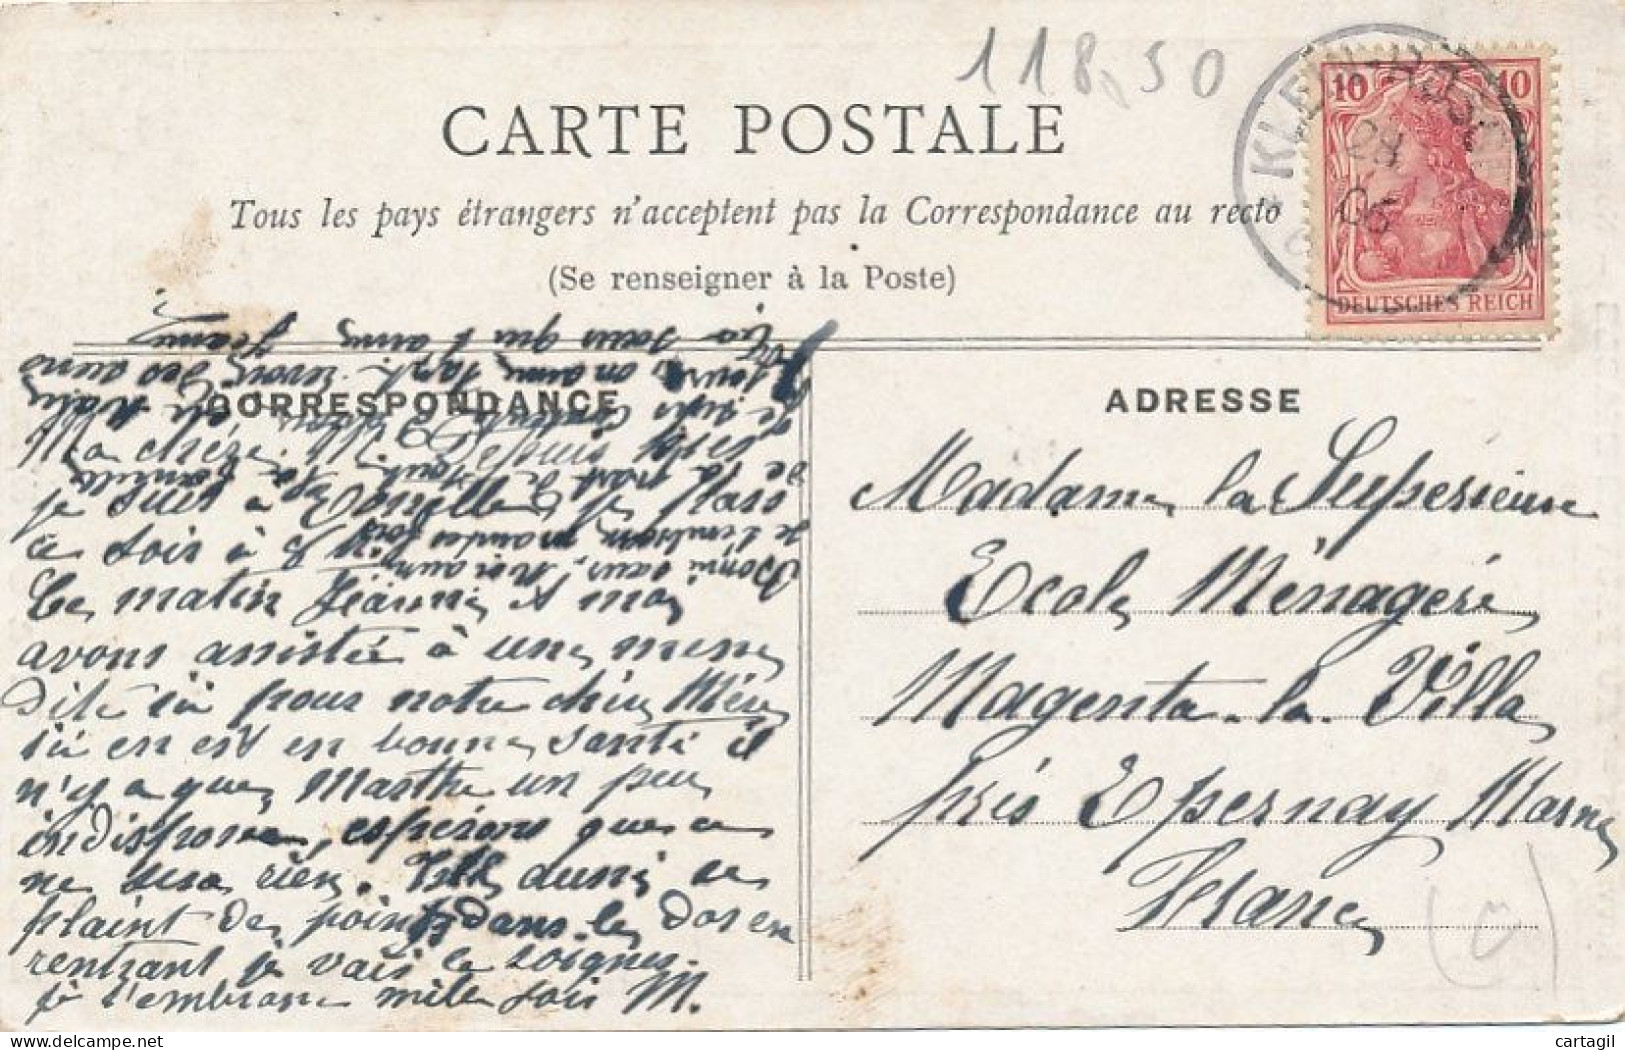 118,50
CARTE POSTALE
Tous les pays étrangers n'acceptent pas la Correspondance au recto
(Se renseigner à la Poste)
10 10
DEUTSCHES REICH
28
06
CORRESPONDANCE
Ma chère M. Depuis hier
je suis à
ce soir à
Ce matin Jeanne et moi
avons assisté à une messe
dite ici pour notre chère Mère
ici en est en bonne santé il
n'y a que Marthe un peu
indisposée, espérons que ce
ne sera rien. aussi se
plaint de points dans le dos en
rentrant je vais le soigner.
je t'embrasse mille fois M.
Bonne sœur, Moi aussi
je t'embrasse maintes fois
de la part de toute la famille
ta sœur qui t'aime Jeanne
ADRESSE
Madame la Supérieure
Ecole Ménagère
Magenta-la-Villa
près Epernay Marne
France
(0)
cartagil